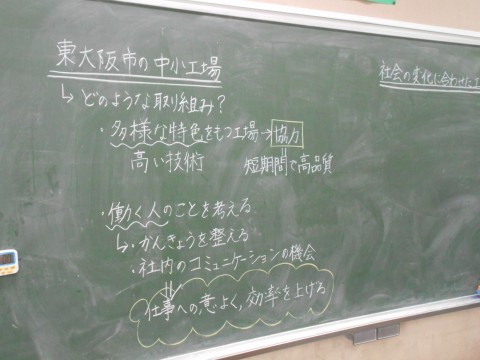 東大阪市の中小工場
↳どのような取り組み?
・多様な特色をもつ工場→協力
高い技術 短期間で高品質
・働く人のことを考える
↳・かんきょうを整える
・社内のコミュニケーションの機会
仕事への意よく,効率を上げる
社会の変化に合わせた工